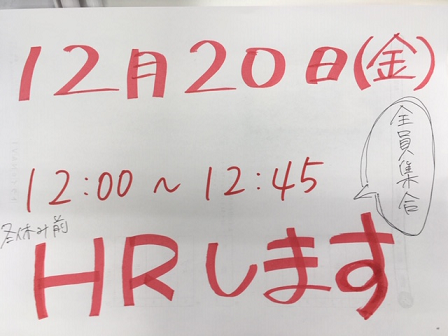 12月20日(金)
全員集合
12:00～12:45
冬休み前
HRします